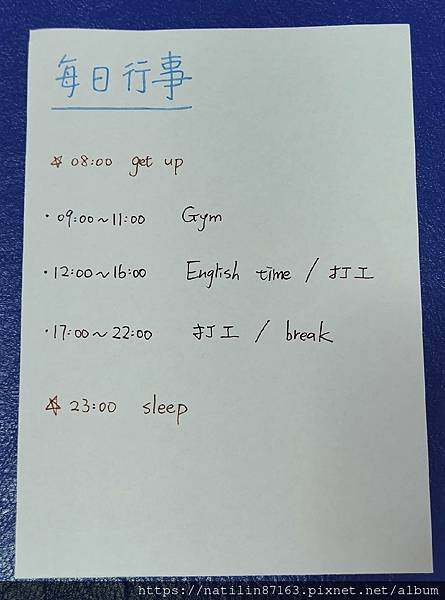 每日行事
☆ 08:00 get up
·09:00~11:00 Gym
·12:00~16:00 English time / 打工
·17:00~22:00 打工 / break
☆ 23:00 sleep
https://natilin87163.pixnet.net/album